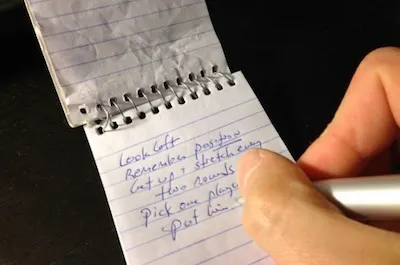 Look Left
Remember position
Get up + stretch every
two rounds
Pick one player
put him